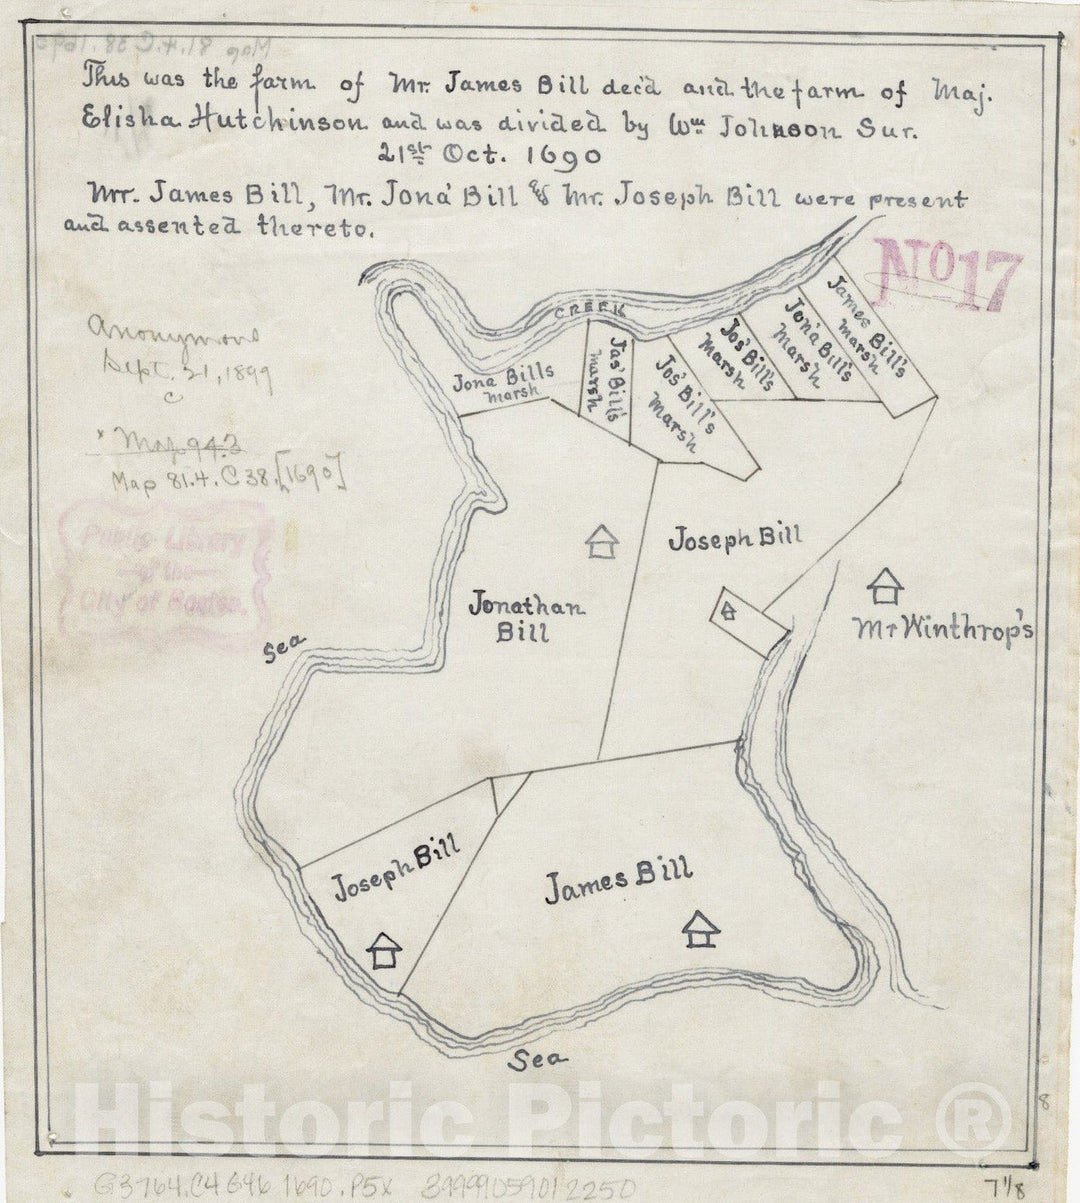 Map 81.4.C 38.1690
This was the farm of Mr. James Bill dec'd and the farm of Maj.
Elisha Hutchinson and was divided by Wm Johnson Sur.
21st Oct. 1690
Mr. James Bill, Mr. Jona' Bill & Mr. Joseph Bill were present
and assented thereto.
No 17
CREEK
James Bill's
marsh
Jon'a Bill's
marsh
Jos' Bill's
marsh
Jos' Bill's
Marsh
Jas' Bill's
marsh
Jona Bills
marsh
Anonymous
Sept. 21, 1899
c
* Map 94.3
Map 81.4.C 38.[1690]
Public Library
of the
City of Boston.
Joseph Bill
Jonathan
Bill
Mr Winthrop's
Sea
Joseph Bill
James Bill
Sea
Historic Pictoric ®
8
G3764.C4 G46 1690.P5x 39999059012250
7 1/8